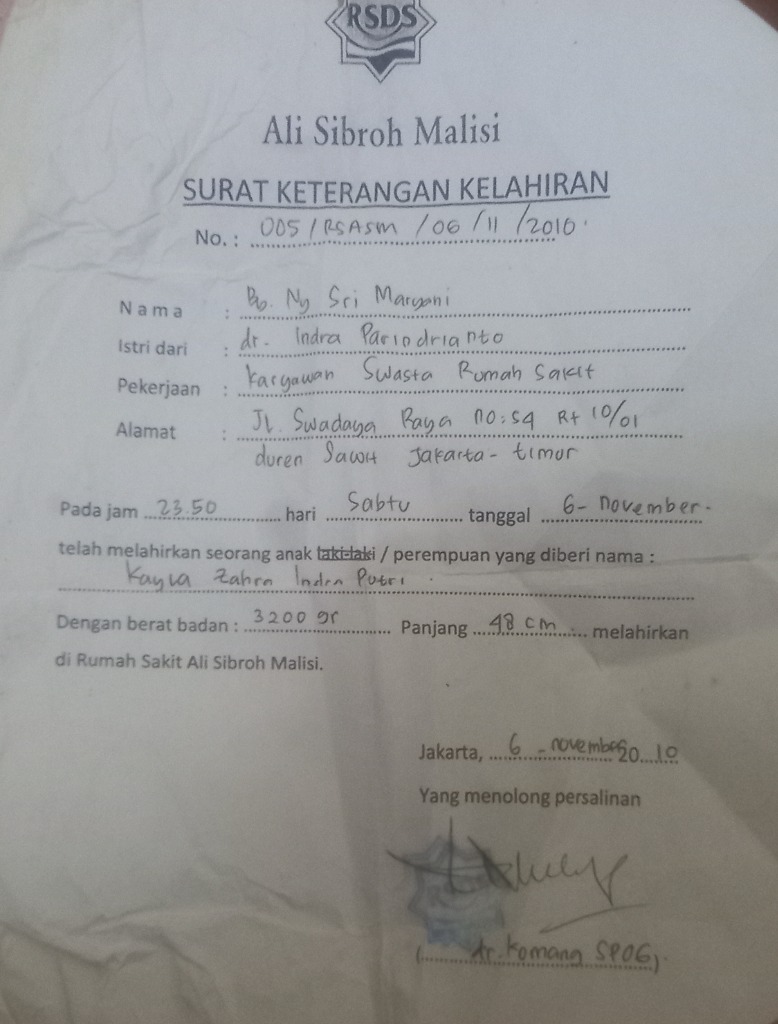 RSDS
Ali Sibroh Malisi
SURAT KETERANGAN KELAHIRAN
No. : 005 / RSASM / 06 / 11 / 2010
Nama : By. Ny Sri Maryani
Istri dari : dr. Indra Parindrianto
Pekerjaan : Karyawan Swasta Rumah Sakit
Alamat : Jl. Swadaya Raya no: 54 Rt 10/01
duren Sawit Jakarta - timur
Pada jam 23.50 hari Sabtu tanggal 6 - november -
telah melahirkan seorang anak laki-laki / perempuan yang diberi nama :
Kayla Zahra Indra Putri
Dengan berat badan : 3200 gr Panjang 48 cm melahirkan
di Rumah Sakit Ali Sibroh Malisi.
Jakarta, 6 - november 2010
Yang menolong persalinan
(dr. Komang SPOG)